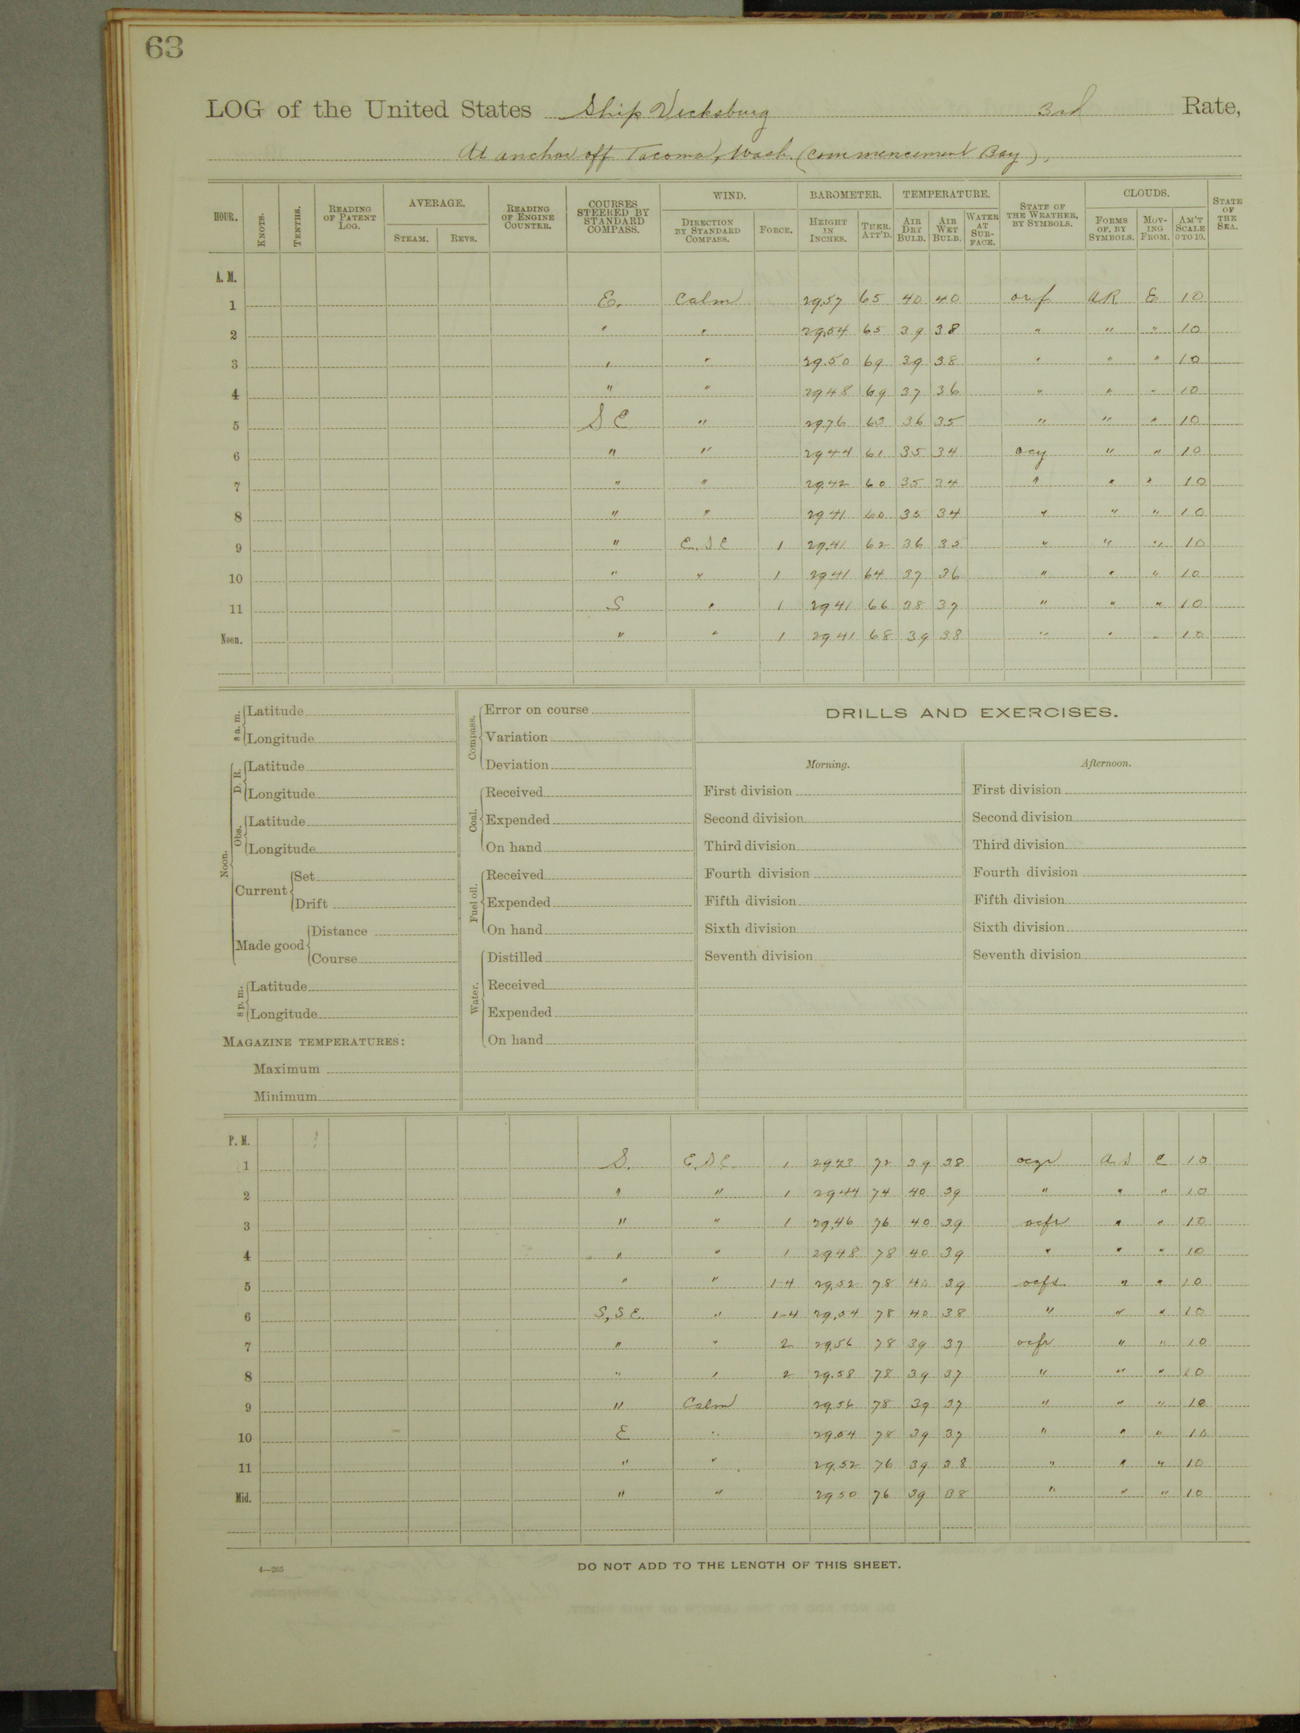 63
LOG of the United States Ship Vicksburg 3rd Rate,
At anchor off Tacoma, Wash. (Commencement Bay),
HOUR. KNOTS. TENTHS. READING OF PATENT LOG. AVERAGE. STEAM. REVS. READING OF ENGINE COUNTER. COURSES STEERED BY STANDARD COMPASS. WIND. DIRECTION BY STANDARD COMPASS. FORCE. BAROMETER. HEIGHT IN INCHES. THER. ATT'D. TEMPERATURE. AIR DRY BULB. AIR WET BULB. WATER AT SURFACE. STATE OF THE WEATHER, BY SYMBOLS. CLOUDS. FORMS OF, BY SYMBOLS. MOVING FROM. AM'T SCALE 0 TO 10. STATE OF THE SEA.
A. M.
1 E. Calm 29.57 65 40 40 orf E 10
2 " " 29.54 65 39 38 " " " 10
3 " " 29.50 69 39 38 " " " 10
4 " " 29 48 69 37 36 " " " 10
5 S E " 29.76 63 36 35 " " " 10
6 " " 29 44 61 35 34 " " 10
7 " " 29.42 60 35 34 " " " 10
8 " " 29 41 60 35 34 " " " 10
9 " E. S E 1 29.41 62 36 35 " " " 10
10 " " 1 29 41 64 37 36 " " " 10
11 S " 1 29 41 66 38 37 " " " 10
Noon. " " 1 29 41 68 39 38 " " " 10
8 a. m. Latitude
Longitude
Noon. D. R. Latitude
Longitude
Obs. Latitude
Longitude
Current Set
Drift
Made good Distance
Course
8 p. m. Latitude
Longitude
MAGAZINE TEMPERATURES:
Maximum
Minimum
Compass. Error on course
Variation
Deviation
Coal. Received
Expended
On hand
Fuel oil. Received
Expended
On hand
Water. Distilled
Received
Expended
On hand
DRILLS AND EXERCISES.
Morning.
First division
Second division
Third division
Fourth division
Fifth division
Sixth division
Seventh division
Afternoon.
First division
Second division
Third division
Fourth division
Fifth division
Sixth division
Seventh division
P. M.
1 S. E. S E. 1 29 43 72 39 38 E 10
2 " " 1 29 44 74 40 39 " " " 10
3 " " 1 29.46 76 40 39 ocfr " " 10
4 " " 1 29 48 78 40 39 " " " 10
5 " " 1-4 29.52 78 40 39 ocfs " " 10
6 S, S E. " 1-4 29.54 78 40 38 " " " 10
7 " " 2 29.56 78 39 37 ocfr " " 10
8 " " 2 29.58 78 39 37 " " " 10
9 " Calm 29.56 78 39 37 " " " 10
10 E " 29.54 78 39 37 " " " 10
11 " " 29.52 76 39 38 " " " 10
Mid. " " 29 50 76 39 38 " " " 10
4—265
DO NOT ADD TO THE LENGTH OF THIS SHEET.